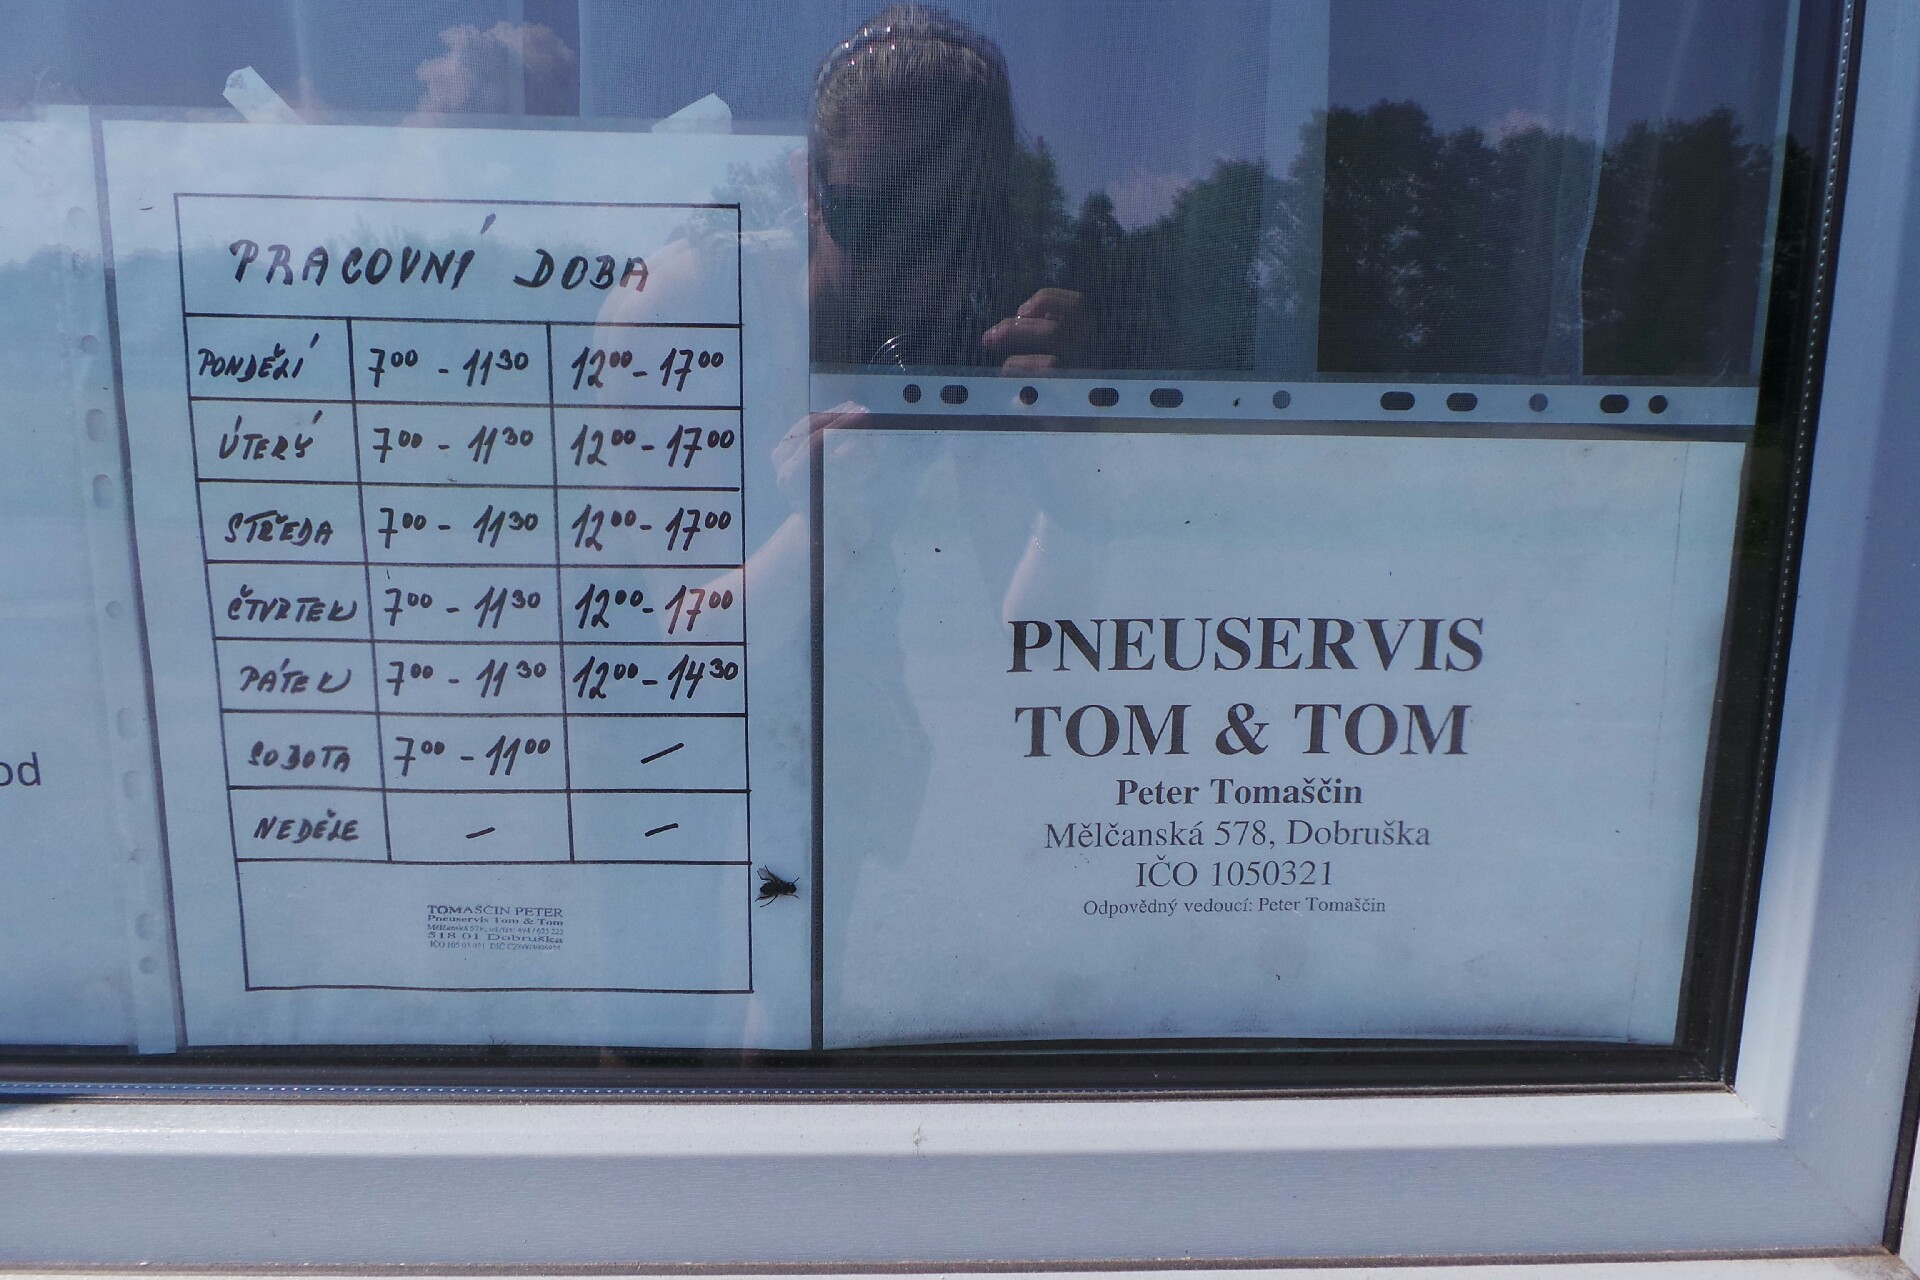 PRACOVNÍ DOBA
PONDĚLÍ 7⁰⁰ - 11³⁰ 12⁰⁰ - 17⁰⁰
ÚTERÝ 7⁰⁰ - 11³⁰ 12⁰⁰ - 17⁰⁰
STŘEDA 7⁰⁰ - 11³⁰ 12⁰⁰ - 17⁰⁰
ČTVRTEK 7⁰⁰ - 11³⁰ 12⁰⁰ - 17⁰⁰
PÁTEK 7⁰⁰ - 11³⁰ 12⁰⁰ - 14³⁰
SOBOTA 7⁰⁰ - 11⁰⁰ –
NEDĚLE – –
TOMAŠČIN PETER
Pneuservis Tom & Tom
Mělčanská 578,
518 01 Dobruška
IČO
od
PNEUSERVIS
TOM & TOM
Peter Tomaščin
Mělčanská 578, Dobruška
IČO 1050321
Odpovědný vedoucí: Peter Tomaščin